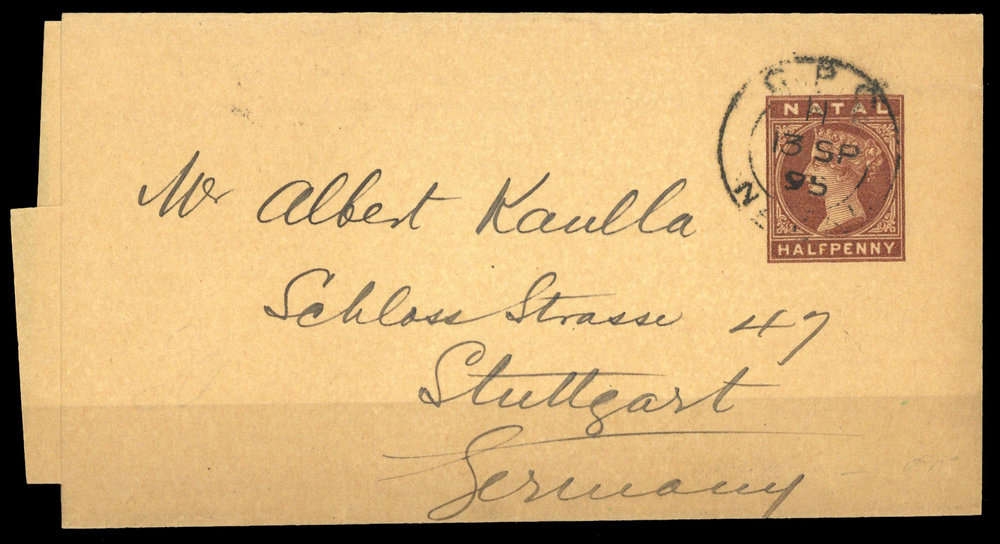 G.P.O.
NATAL
H
13 SP
95
HALFPENNY
Mr Albert Kaulla
Schloss Strasse 47
Stuttgart
Germany